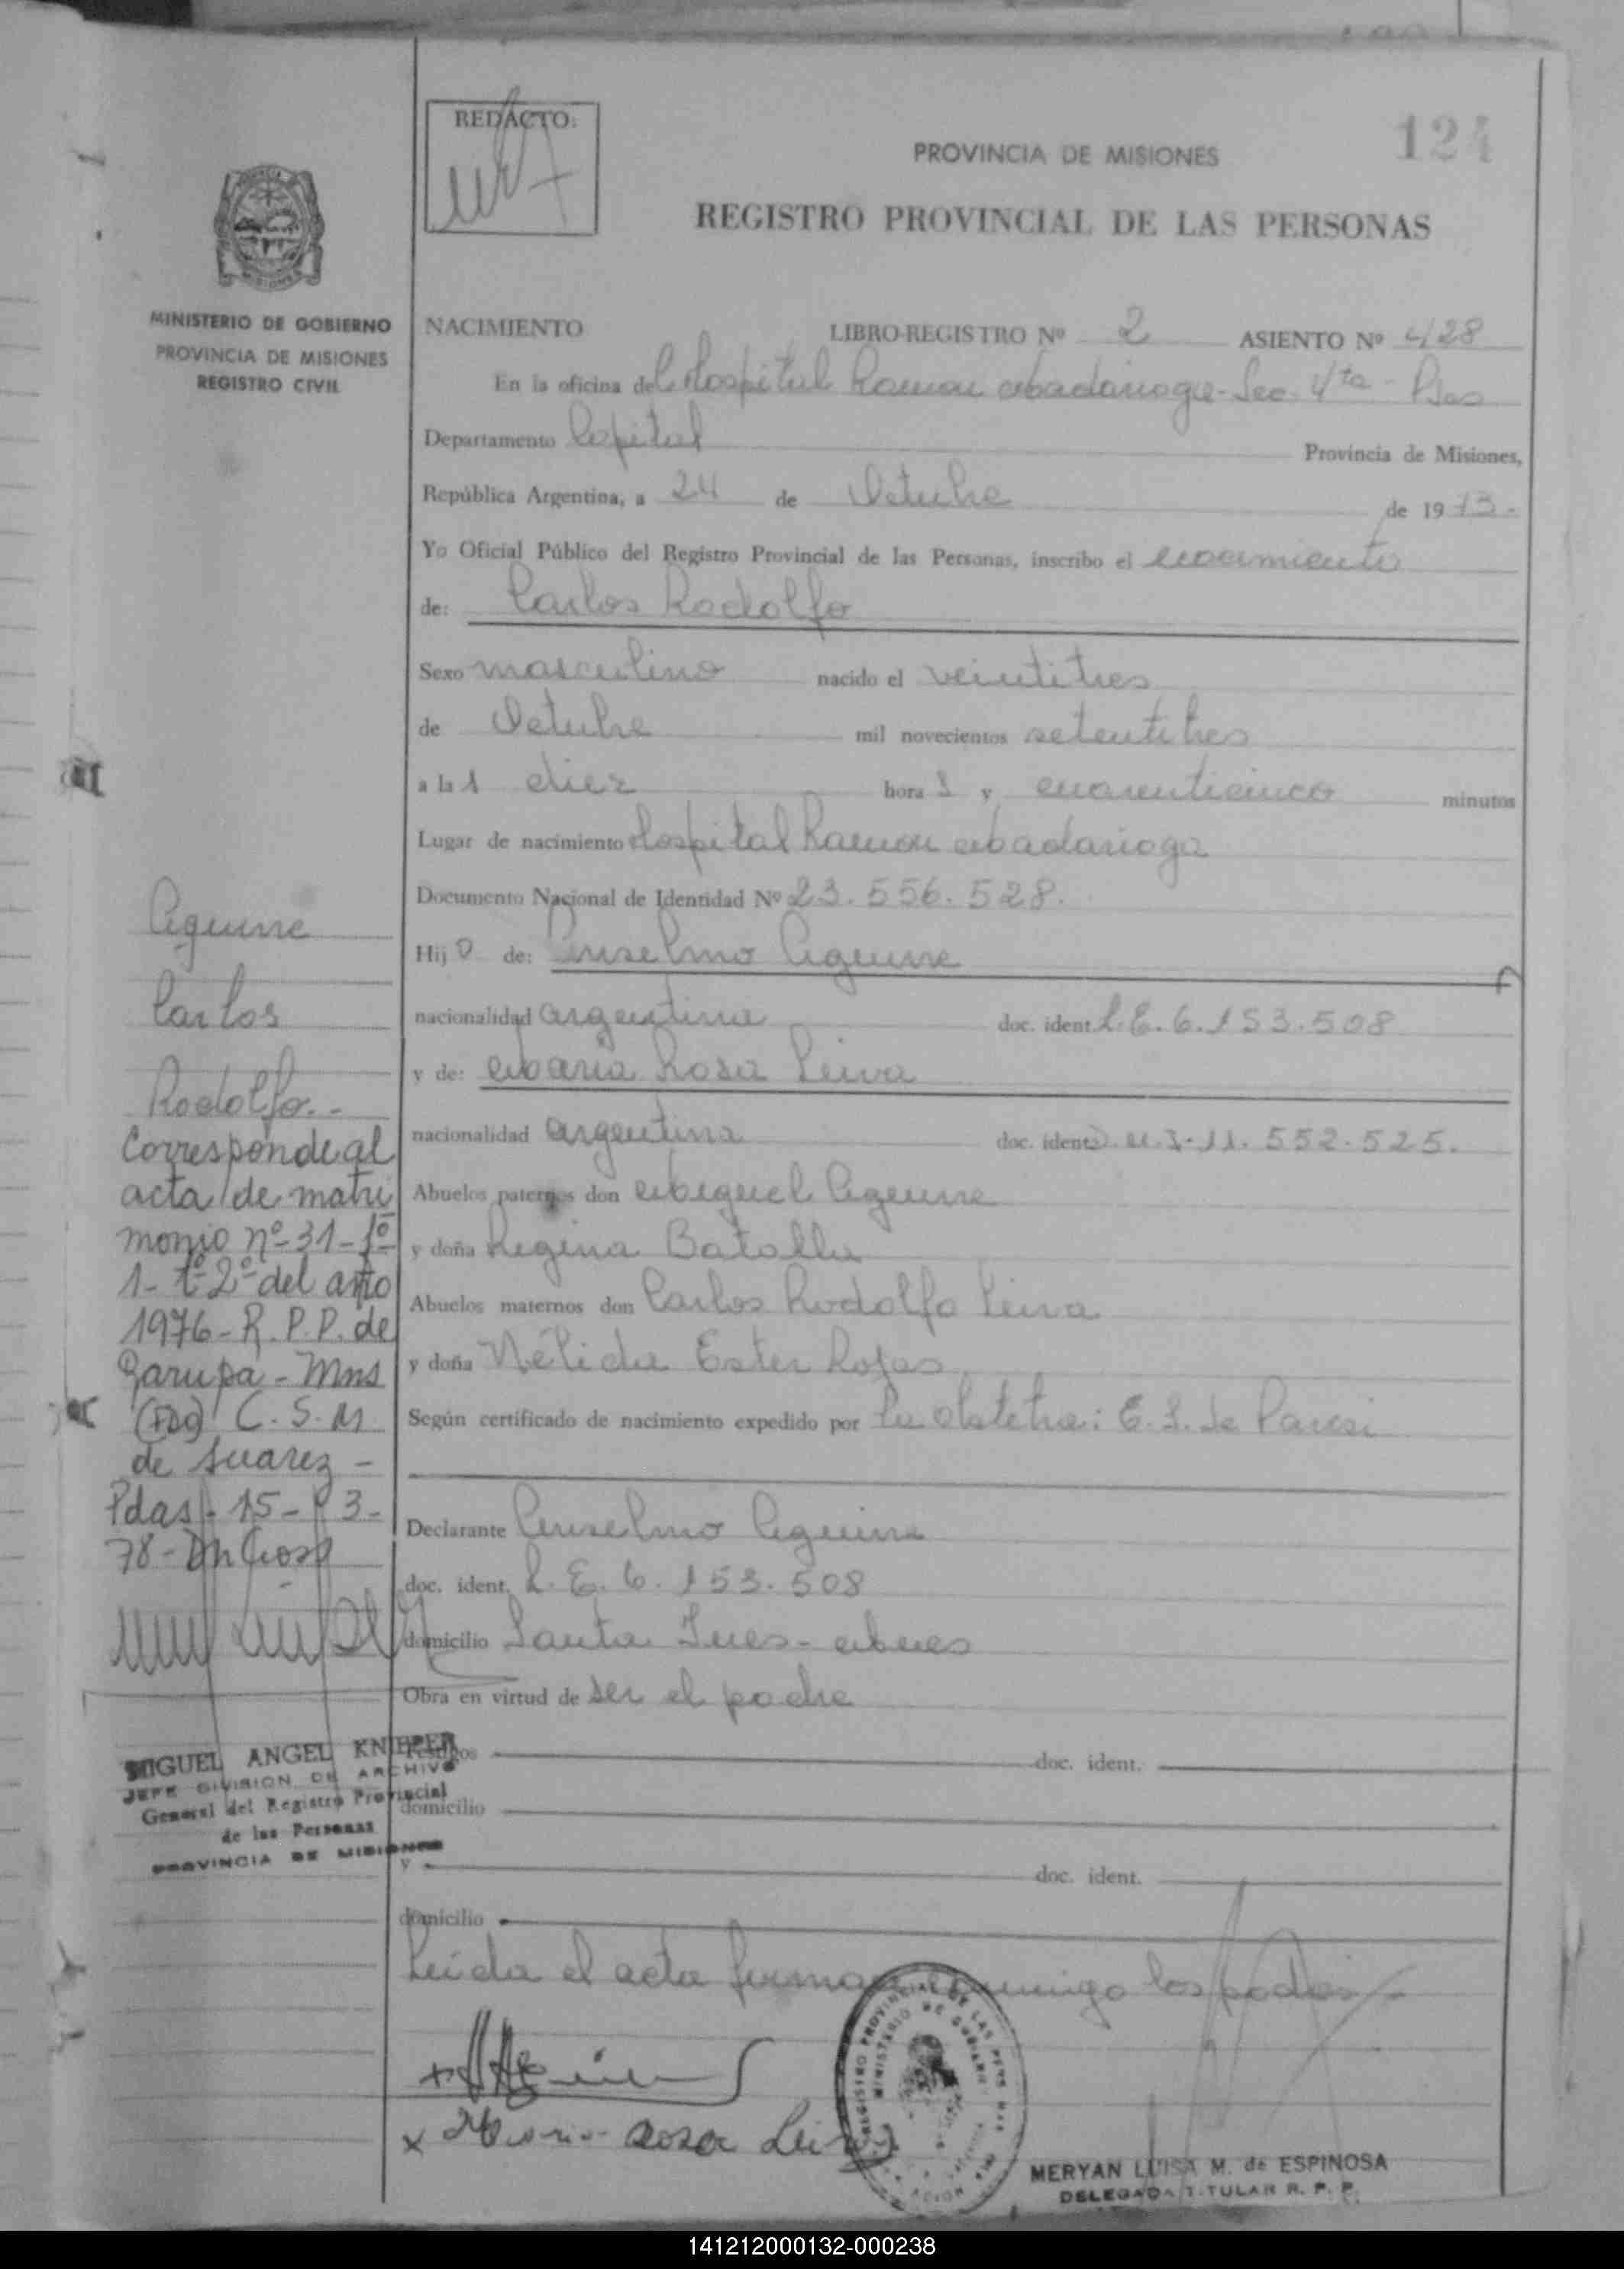 REDACTO:
124
PROVINCIA DE MISIONES
REGISTRO PROVINCIAL DE LAS PERSONAS
MINISTERIO DE GOBIERNO
PROVINCIA DE MISIONES
REGISTRO CIVIL
NACIMIENTO LIBRO-REGISTRO Nº 2 ASIENTO Nº 428
En la oficina del Hospital Ramon Madariaga - Sec. 4ta - Pdas
Departamento Capital Provincia de Misiones,
República Argentina, a 24 de Octubre de 1973.
Yo Oficial Público del Registro Provincial de las Personas, inscribo el nacimiento
de: Carlos Rodolfo
Sexo masculino nacido el veintitres
de Octubre mil novecientos setentitres
a las diez horas y cuarenticinco minutos
Lugar de nacimiento Hospital Ramon Madariaga
Documento Nacional de Identidad Nº 23.556.528.
Hijo de: Anselmo Aguirre
nacionalidad argentina doc. ident. L.E. 6.153.508
y de: Maria Rosa Leiva
nacionalidad argentina doc. ident. D.N.I. 11.552.525.
Abuelos paternos don Miguel Aguirre
y doña Regina Batalla
Abuelos maternos don Carlos Rodolfo Leiva
y doña Nélida Ester Rojas
Según certificado de nacimiento expedido por La obstetra: E. S. de
Declarante Anselmo Aguirre
doc. ident. L.E. 6.153.508
domicilio Santa Ines - Mnes
Obra en virtud de ser el padre
Testigos doc. ident.
domicilio
y doc. ident.
domicilio
Leída el acta firman conmigo los padres -
x Maria Rosa Leiva
REGISTRO PROVINCIAL DE LAS PERSONAS
MINISTERIO DE GOBIERNO
MERYAN LUISA M. de ESPINOSA
DELEGADA TITULAR R. P. P.
Aguirre
Carlos
Rodolfo.-
Corresponde al
acta de matri
monio nº 31 - fº
1 - tº 2º del año
1976 - R. P. P. de
Garupa - Mns
(Fdo) C. S. M.
de Suarez -
Pdas - 15 - 3 -
78 -
MIGUEL ANGEL KNIEPER
JEFE DIVISION DE ARCHIVO
General del Registro Provincial
de las Personas
PROVINCIA DE MISIONES
141212000132-000238